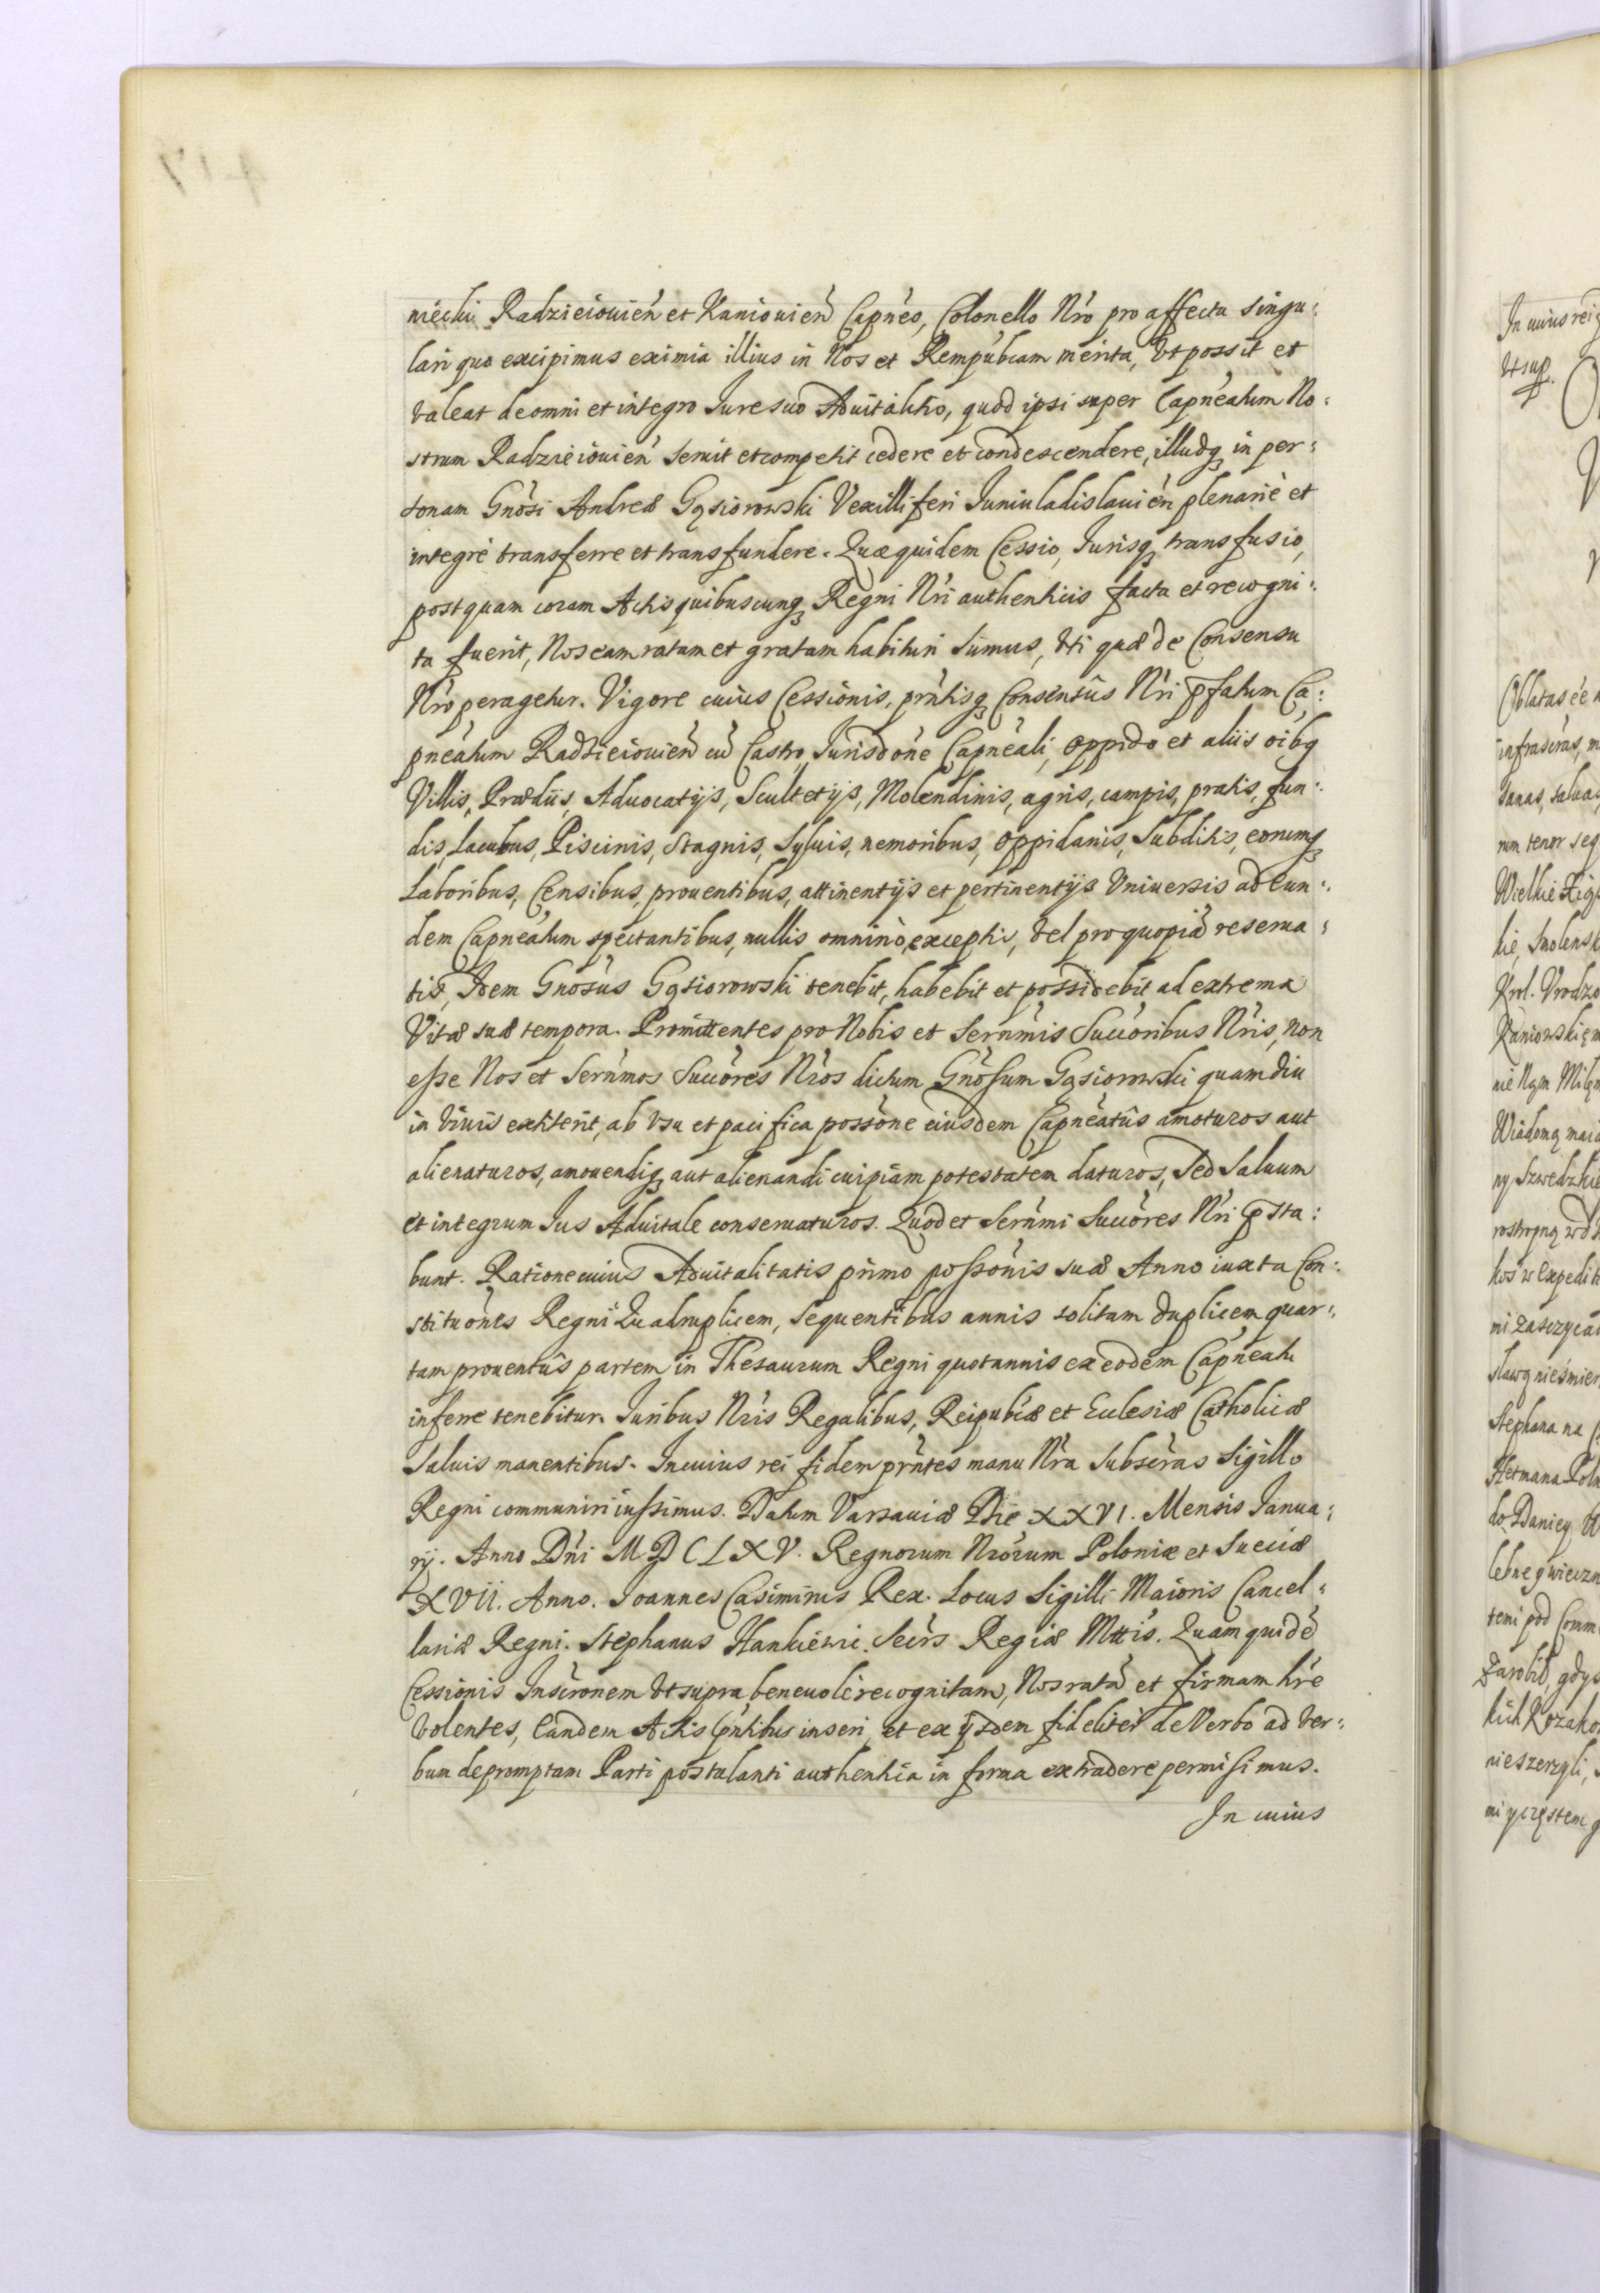 niecki Radzieiouień et Kaniouień Capńeo, Colonello Nŕo pro affectu singu:
lari quo excipimus eximia illius in Nos et Rempubcam merita, Vt possit et
valeat de omni et integro Iure suo Aduitalitio, quod ipsi super Capńeatum No:
strum Radzieiouień seruit et competit cedere et condescendere, illudq in per:
sonam Gnosi Andreæ Gąsiorowski Vexilliferi Iuniuladislauień plenarie et
integre transferre et transfundere. Quæ quidem Cessio, Iurisq transfusio,
postquam coram Actis quibuscunq Regni Nri authenticis facta et recogni:
ta fuerit, Nos eam ratam et gratam habituri sumus, vti quæ de Consensu
Nŕo peragetur. Vigore cuius Cessionis, prńtisq Consensûs Nŕi p̄fatum Ca:
pneatum Radzieiouień cū Castro, Iurisdone Capneali, oppido et aliis oibq
Villis, Prædiis, Aduocatijs, Scultetijs, Molendinis, agris, campis, pratis, fun:
dis, Lacubus, Piscinis, stagnis, syluis, nemoribus, oppidanis, Subditis, eorumq
Laboribus, Censibus, prouentibus, attinentijs et pertinentijs Vniuersis ad eun:
dem Capneatum spectantibus, nullis omninò exceptis, vel pro quopiā reserua:
tis, Idem Gnosus Gąsiorowski tenebit, habebit et possidebit ad extrema
Vitæ suæ tempora. Promittentes pro Nobis et Sernmis Succoribus Nris, non
esse Nos et Sernmos Succores Nros dictum Gnosum Gąsiorowski quamdiu
in viuis extiterit, ab vsu et pacifica possone eiusdem Capneatûs amoturos aut
alienaturos, amouendiq aut alienandi cuipiam potestatem daturos, Sed Saluum
et integrum Ius Aduitale conseruaturos. Quod et Sernmi Succores Nri p̄sta:
bunt. Ratione cuius Aduitalitatis primo possonis suæ Anno iuxta Con:
stitutiones Regni Quadruplicem, sequentibus annis solitam duplicem quar:
tam prouentûs partem in Thesaurum Regni quotannis ex eodem Capneatu
inferre tenebitur. Iuribus Nris Regalibus, Reipubcæ et Eclesiæ Catholicæ
Saluis manentibus. In cuius rei fidem prntes manu Nra Subscras Sigillo
Regni communiri iussimus. Datum Varsauiæ Die XXVI. Mensis Ianua:
rij. Anno Dni MDCLXV. Regnorum Nrorum Poloniæ et Sueciæ
XVII. Anno. Ioannes Casimirus Rex. Locus Sigilli Maioris Cancel:
lariæ Regni. Stephanus Hankiewic. Secrs Regiæ Mttis. Quam quidē
Cessionis Inscronem vt supra beneuole recognitam, Nos ratā et firmam hre
volentes, Eandem Actis prntibus inseri, et ex ijsdem fideliter de Verbo ad ver:
bum depromptam Parti postulanti authentica in forma extradere permisimus.
In cuius
In cuius rei
Vt sup.
Oblatas ee
infrascras,
sanas, saluas
rum tenor seq
Wielkie Xię
kie, Smolensk
Krol. Vrodzo
Kaniowskię
nie Nąm Milę
Wiadomą maią
ny Szwedzkie
kos w Expedit
mi zasczycai
sławą nieśmier
Stephana na
Hetmana Poln
do Daniey
lebne y wieczn
temi pod Comm
zarobił, gdys
kich Kozako
nieszerzyli,